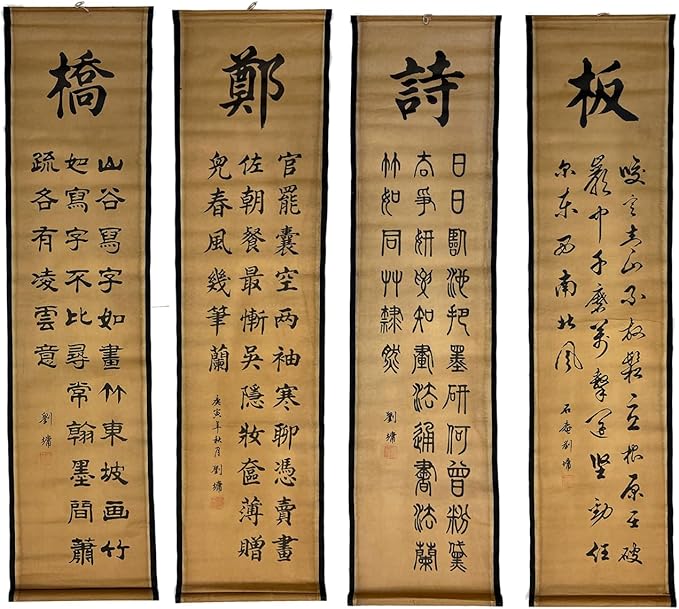 板
咬定青山不放鬆立根原在破
巖中千磨萬擊還堅勁任
尔東西南北風
石庵劉墉
詩
日日臨池把墨研何曾粉黛
去爭妍要知畫法通書法蘭
竹如同艸隸然
劉墉
鄭
官罷囊空两袖寒聊憑賣畫
佐朝餐最慚吳隱妝奩薄贈
兒春風幾筆蘭
庚寅年秋月 劉墉
橋
山谷寫字如畫竹東坡画竹
如寫字不比尋常翰墨間蕭
疏各有凌雲意
劉墉